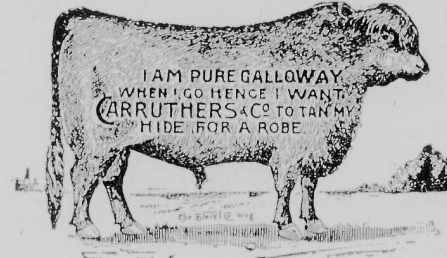 I AM PURE GALLOWAY
WHEN I GO HENCE I WANT
CARRUTHERS & CO TO TAN MY
HIDE FOR A ROBE.